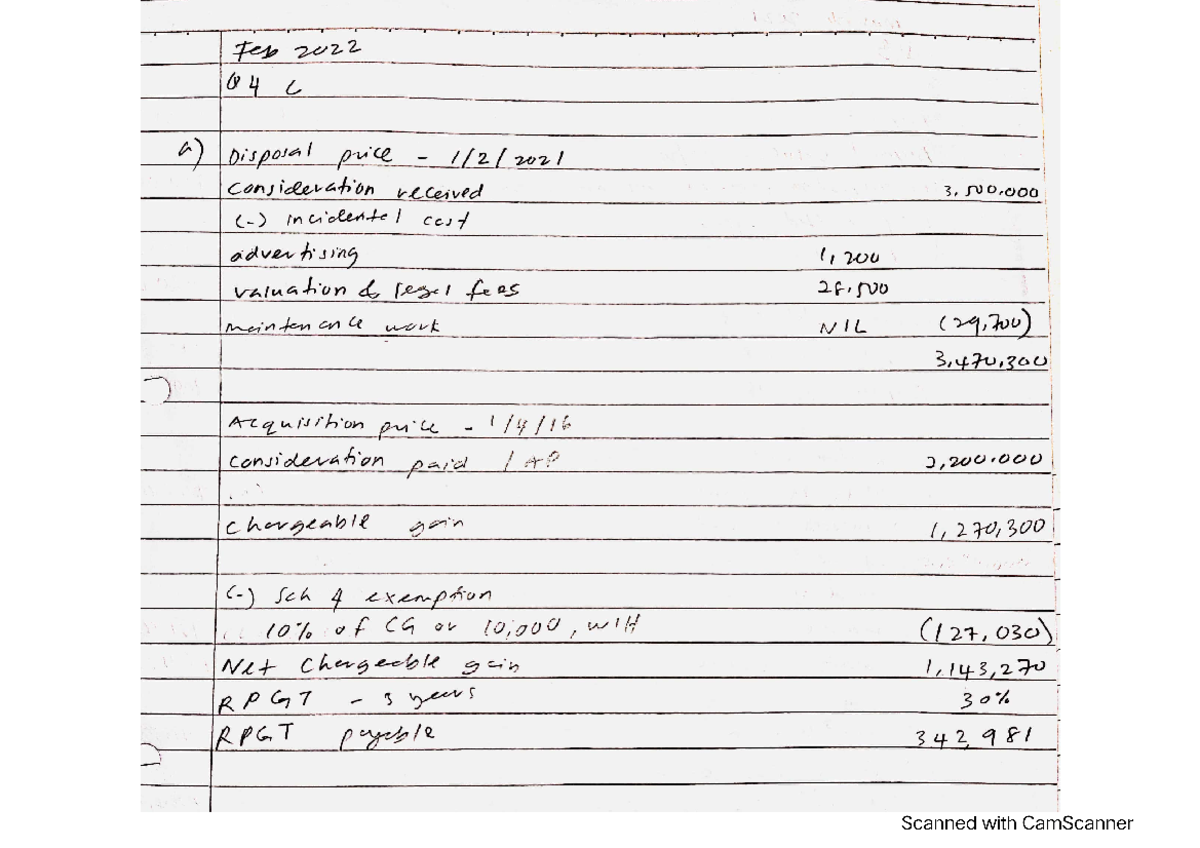 Feb 2022
Q4 C
a) Disposal price - 1/2/2021
Consideration received 3,500,000
(-) incidental cost
advertising 1,200
valuation & legal fees 28,500
maintenance work NIL (29,700)
3,470,300
Acquisition price - 1/4/16
consideration paid / AP 2,200,000
Chargeable gain 1,270,300
(-) Sch 4 exemption
10% of CG or 10,000, WIH (127,030)
Net Chargeable gain 1,143,270
RPGT - 3 years 30%
RPGT payable 342,981
Scanned with CamScanner